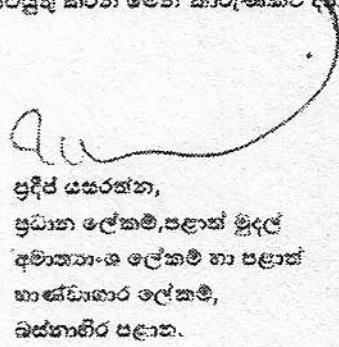 කරන මෙන් කාරුණිකව
ප්‍රදීප් යසරත්න,
ප්‍රධාන ලේකම්,පළාත් මුදල්
අමාත්‍යාංශ ලේකම් හා පළාත්
භාණ්ඩාගාර ලේකම්,
බස්නාහිර පළාත.